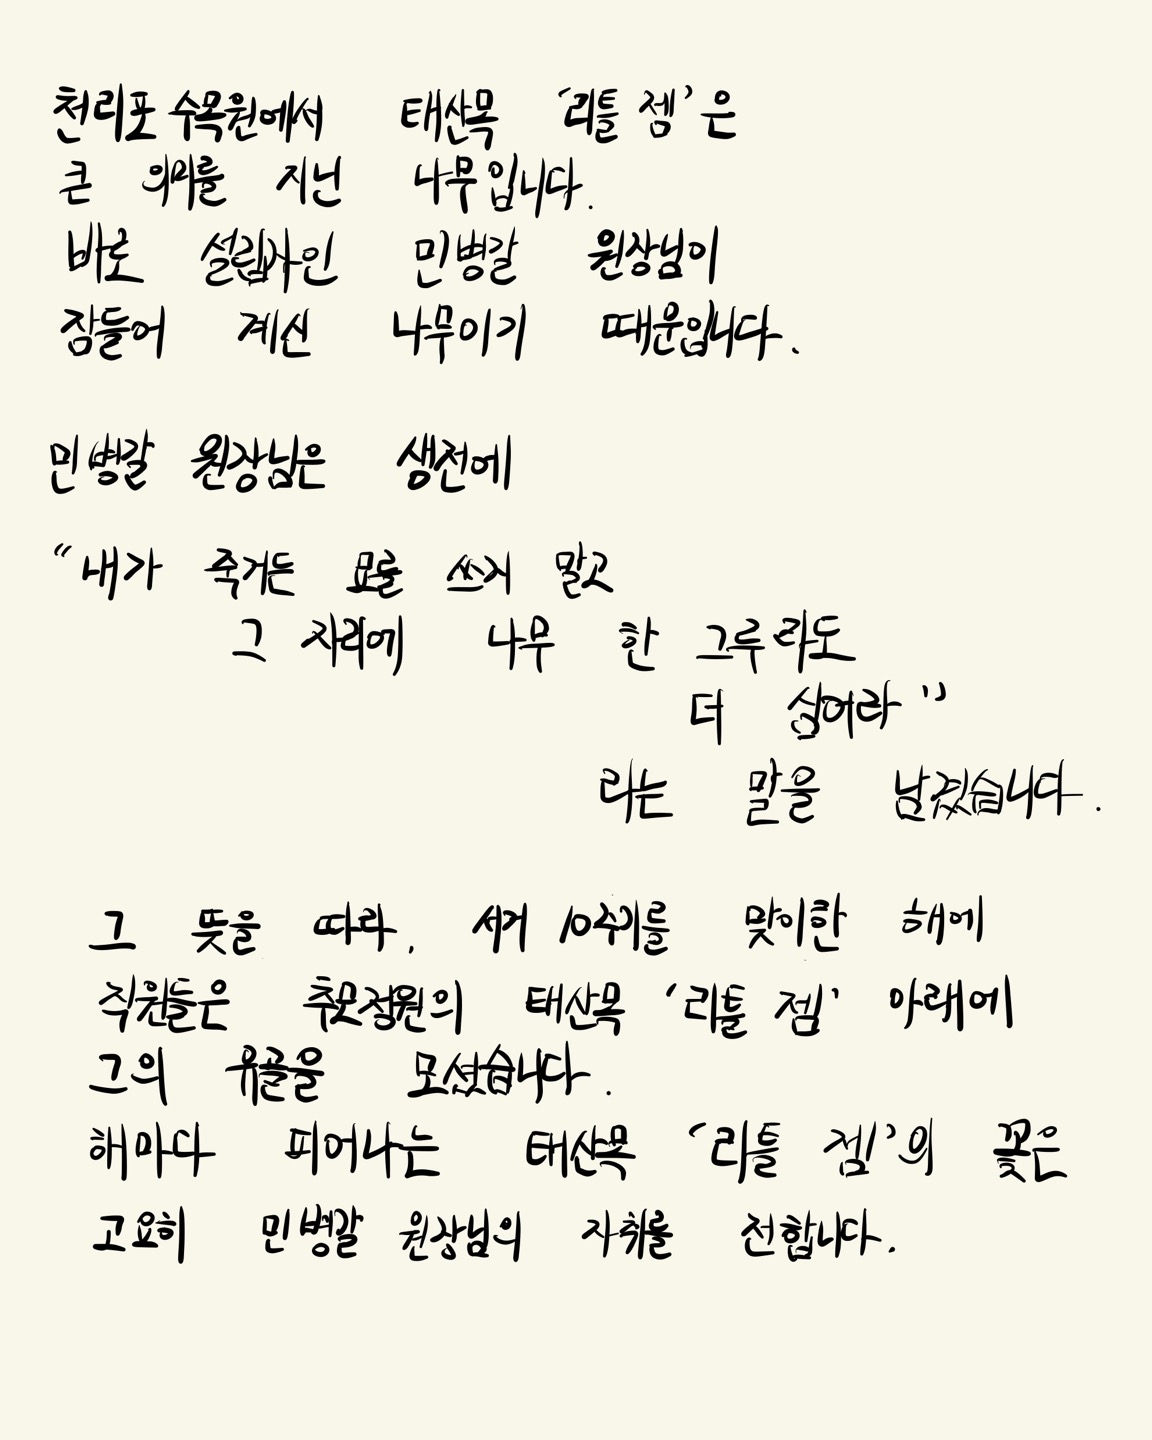 천리포 수목원에서 태산목 ‘리틀 젬’은
큰 의미를 지닌 나무입니다.
바로 설립자인 민병갈 원장님이
잠들어 계신 나무이기 때문입니다.
민병갈 원장님은 생전에
“내가 죽거든 묘를 쓰지 말고
그 자리에 나무 한 그루라도
더 심어라”
라는 말을 남겼습니다.
그 뜻을 따라, 서거 10주기를 맞이한 해에
직원들은 추모정원의 태산목 ‘리틀 젬’ 아래에
그의 유골을 모셨습니다.
해마다 피어나는 태산목 ‘리틀 젬’의 꽃은
고요히 민병갈 원장님의 자취를 전합니다.